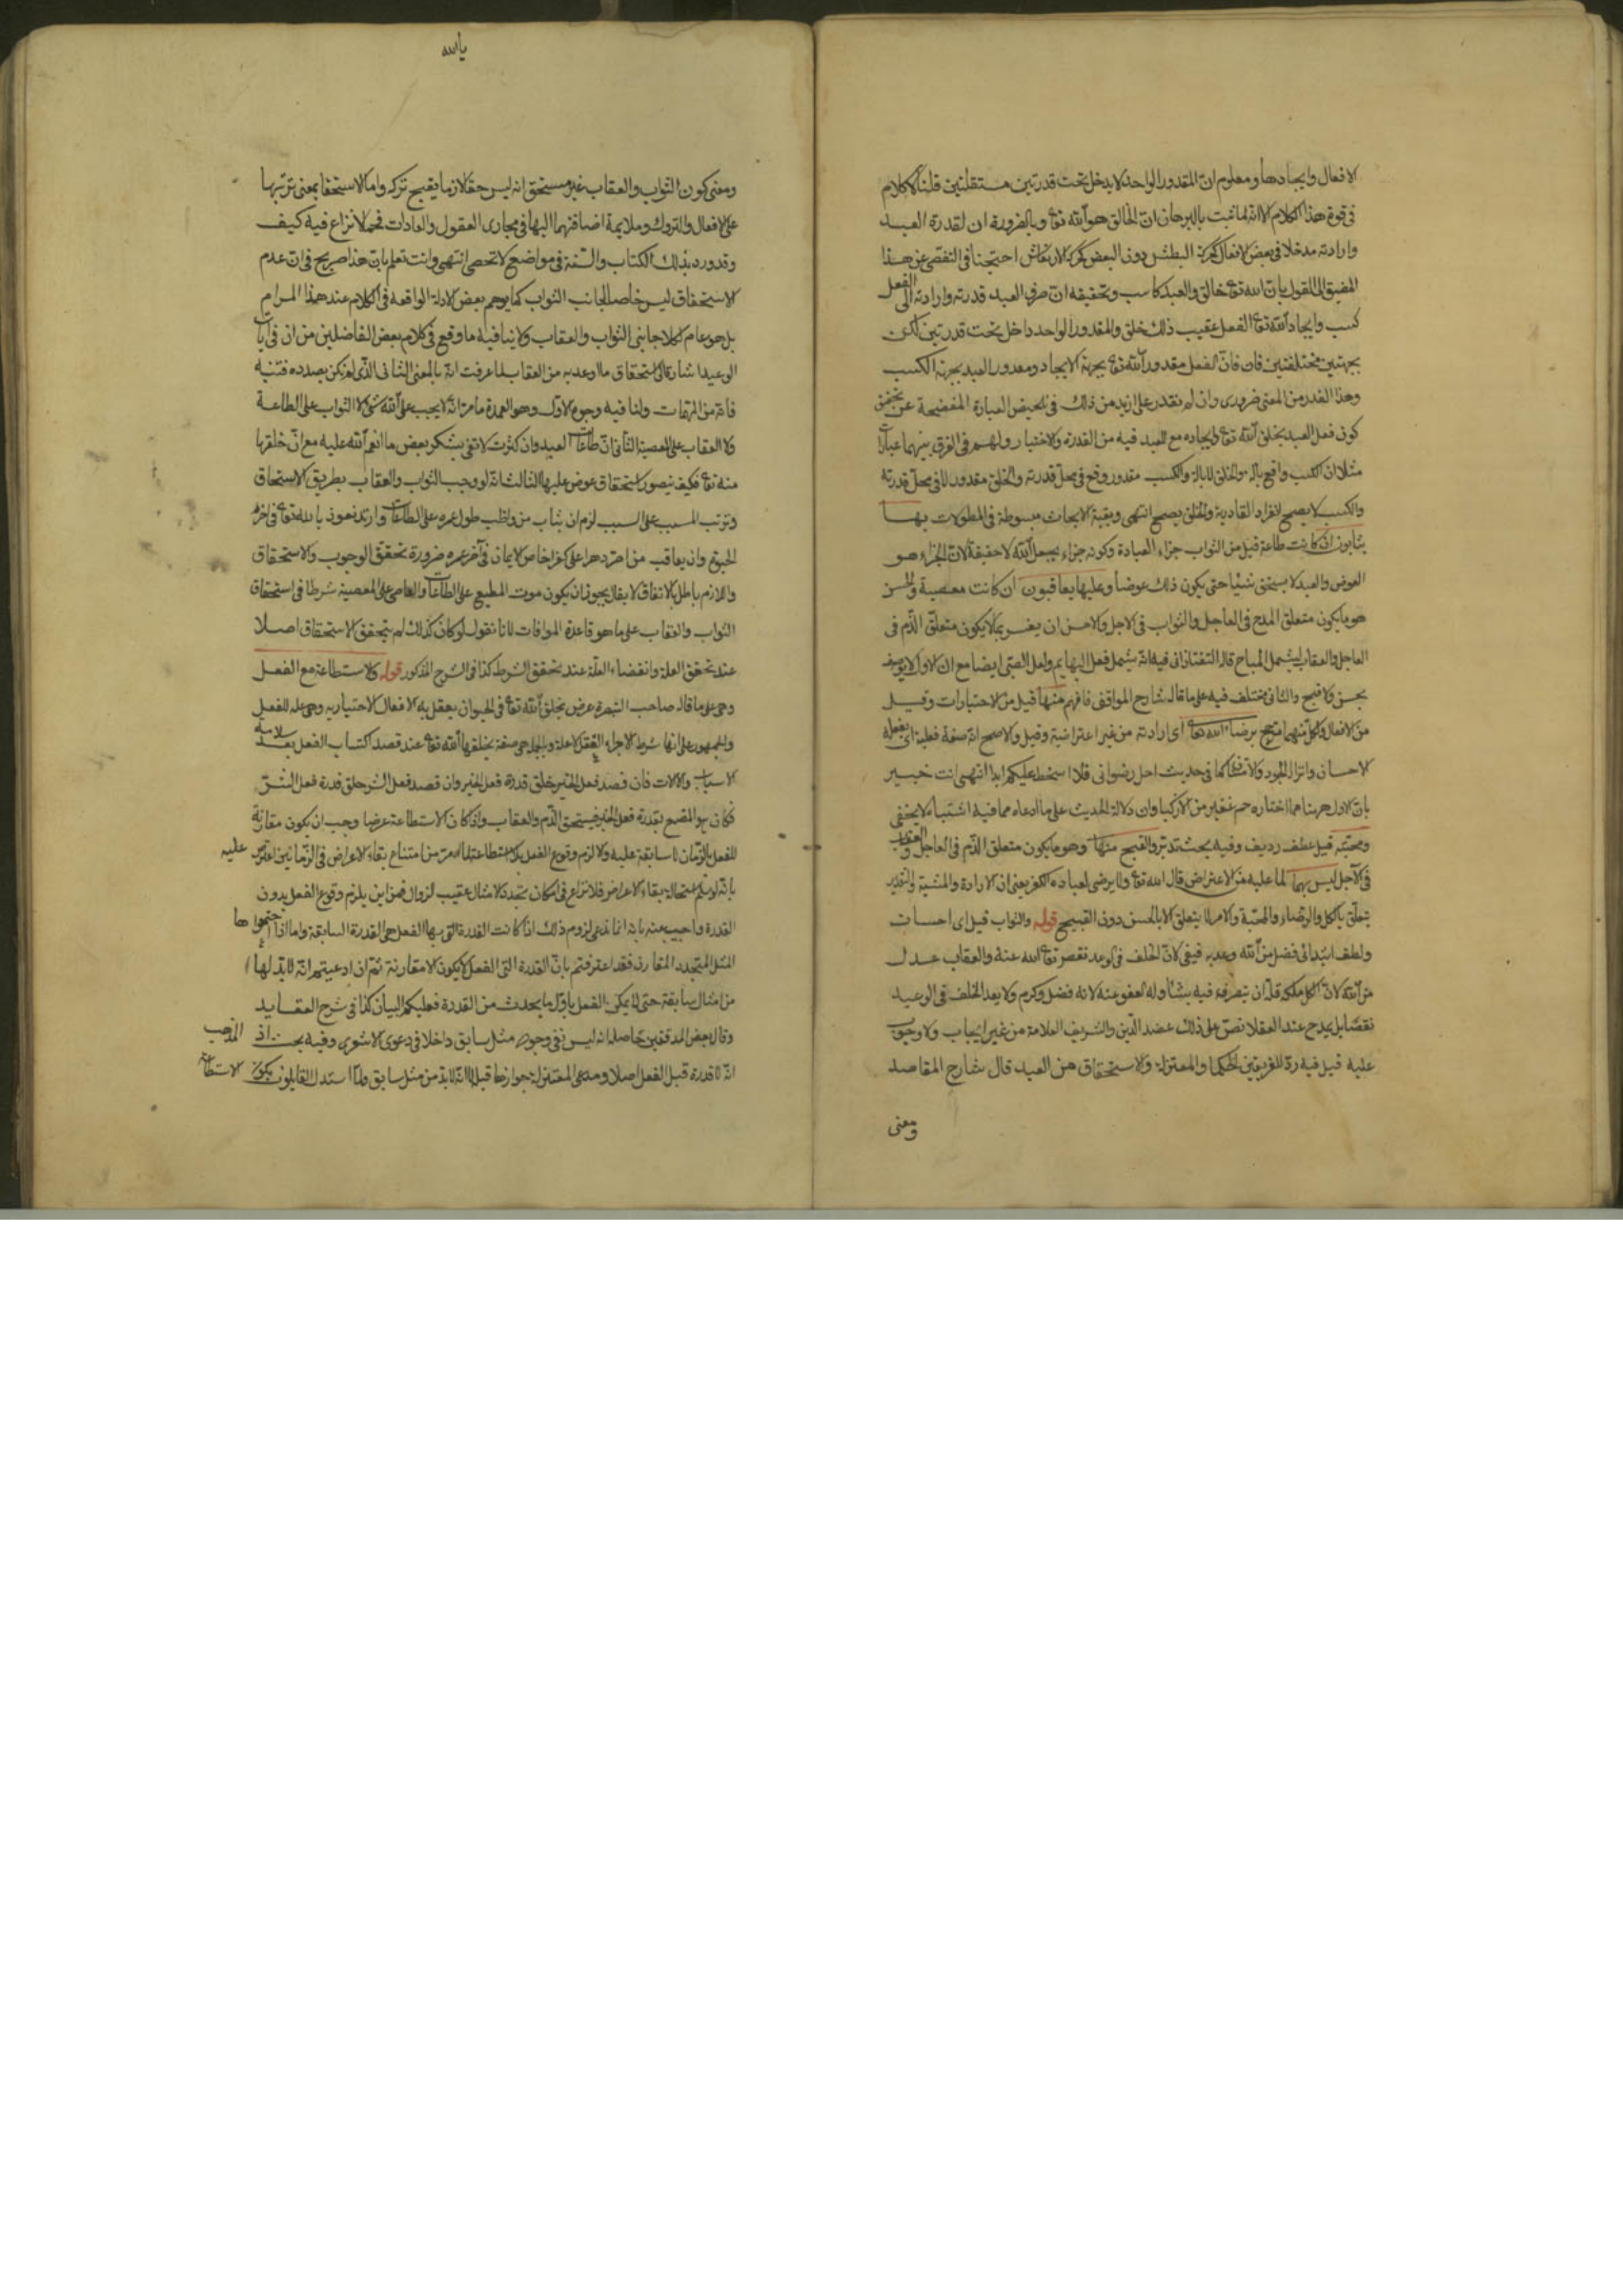 الافعال وايجادها ومعلوم ان المقدور الواحد لا يدخل تحت قدرتين مستقلتين قلنا لا كلام
فى قوة هذا الكلام الا انه لما ثبت بالبرهان ان الخالق هو الله تع وبالضرورة ان لقدرة العبد
وارادته مدخلا فى بعض الافعال كحركة البطش دون البعض كحركة الارتعاش احتجنا فى التفصى عن هذا
المضيق الى القول بان الله تع خالق والعبد كاسب وتحقيقه ان صرف العبد قدرته وارادته الى الفعل
كسب وايجاد الله تع الفعل عقيب ذلك خلق والمقدور الواحد داخل تحت قدرتين لكن
بجهتين مختلفتين فان الفعل مقدور الله تع بجهة الايجاد ومقدور العبد بجهة الكسب
وهذا القدر من المعنى ضرورى وان لم نقدر على ازيد من ذلك فى تلخيص العبارة المفصحة عن تحقيق
كون فعل العبد بخلق الله تع وايجاده مع للعبد فيه من القدرة والاختيار ولهم فى الفرق بينهما عبارات
مثل ان الكسب واقع بالة والخلق لا بالة والكسب مقدور وقع فى محل قدرته والخلق مقدور لا فى محل قدرته
والكسب لا يصح انفراد القادر به والخلق يصح انتهى وبقية الابحاث مبسوطة فى المطولات بها
يثابون ان كانت طاعة قيل من الثواب جزاء العبادة وكونه جزاء بجعل الله لا حقيقة لان الجزاء هو
العوض والعبد لا يستحق شيئا حتى يكون ذلك عوضا وعليها يعاقبون ان كانت معصية والحسن
هو ما يكون متعلق المدح فى العاجل والثواب فى الاجل والاحسن ان يفسر بما لا يكون متعلق الذم فى
العاجل والعقاب ليشمل المباح قاله التفتازانى فيه انه يشمل فعل البهايم ولعل الصبى ايضا مع ان الاول لا يوصف
بحسن ولا قبح والثانى مختلف فيه على ما قال شارح المواقف فافهم منها قيل من الاختيارات وقيل
من الافعال ولكل منهما متجه برضاء الله تعا اى ارادته من غير اعتراضية وقيل والاصح انه صفة فعلية اى يفعله
الاحسان وانزال الجود كما فى حديث احل رضوانى فلا اسخط عليكم ابدا انتهى انت خبير
بان الاول مما اختاره جم غفير من الازكيا وان دلالة الحديث على ما ادعاه مما فيه اشتباه لا يخفى
ومحبته قيل عطف رديف وفيه بحث تدبر والقبيح منها وهو ما يكون متعلق الذم فى العاجل والعقاب
فى الاجل ليس بهما لما عليه من الاعتراض قال الله تع ولا يرضى لعباده الكفر يعنى ان الارادة والمشية والتقدير
يتعلق بالكل والرضاء والمحبة والامر لا يتعلق الا بالحسن دون القبيح قوله والثواب قيل اى احسان
ولطف ابتدائى فضل من الله وعد به فيفى لان الخلف فى الوعد نقص تع الله عنه والعقاب عدل
من الله لان الكل ملكه فله ان يتصرف فيه بشاء وله العفو عنه لانه فضل وكرم ولا يعد الخلف فى الوعيد
نقصا بل يمدح عند العقلا نص على ذلك عضد الدين والشريف العلامة من غير ايجاب ولا وجوب
عليه قيل فيه رد للفريقين الحكما والمعتزلة والاستحقاق من العبد قال شارح المقاصد
ومعنى
يا الله
ومعنى كون الثواب والعقاب غير مستحق انه ليس حقا لازما يقبح تركه واما الاستحقا بمعنى ترتبها
على الافعال والتروك وملايمة اضافتهما اليها فى مجارى العقول والعادات فمما لا نزاع فيه كيف
وقد ورد بذلك الكتاب والسنة فى مواضع لا تحصى انتهى وانت تعلم بان هذا صريح فى ان عدم
الاستحقاق ليس خاصا لجانب الثواب كما يوهم بعض الادلة الواقعة فى الكلام عند هذا المرام
بل هو عام لكلا جانبى الثواب والعقاب ولا ينافيه ما وقع فى كلام بعض الفاضلين من ان فى آيات
الوعيد اشارة الى استحقاق ما اوعد به من العقاب لما عرفت انه بالمعنى الثانى الذى لم نكن بصدده فتنبه
فانه من المهمات ولنا فيه وجوه الاول وهو العمدة ما مر انه لا يجب على الله شئ لا الثواب على الطاعة
ولا العقاب على المعصية الثانى ان طاعات العبد وان كثرت لا تفى بشكر بعض ما انعم الله عليه مع ان خلقها
منه تع فكيف يتصور استحقاق عوض عليها الثالث انه لو وجب الثواب والعقاب بطريق الاستحقاق
وترتب المسبب على السبب لزم ان يثاب من واظب طول عمره على الطاعات وارتد نعوذ بالله تع فى آخر
الحيوة وان يعاقب من اصر دهرا على كفر اخلص الايمان فى آخر عمره ضرورة تحقق الوجوب والاستحقاق
واللازم باطل بالاتفاق لا يقال يجوز ان يكون موت المطيع على الطاعات والعاصى على المعصية شرطا فى استحقاق
الثواب والعقاب على ما هو قاعدة الموافات لانا نقول لو كان كذلك لم يتحقق الاستحقاق اصلا
عند تحقق العلة وانقضاء العلة عند تحقق الشرط كذا فى الشرح المذكور قوله والاستطاعة مع الفعل
وهى على ما قال صاحب التبصرة عرض يخلق الله تع فى الحيوان يفعل به الافعال الاختياريه وهى علة للفعل
والجمهور على انها شرط لاداء الفعل لا علة وبالجملة هى صفة يخلقها الله تع عند قصد اكتساب الفعل بعد سلامة
الاسباب والالات فان قصد فعل الخير خلق قدرة فعل الخير وان قصد فعل الشر خلق قدرة فعل الشر
فكان هو المضيع لقدرة فعل الخير فيستحق الذم والعقاب واذا كان الاستطاعة عرضا وجب ان يكون مقارنة
للفعل بالزمان لا سابقة عليه والا لزم وقوع الفعل بلا استطاعة لما مر من امتناع بقاء الاعراض فى الزمانين اعترض عليه
بانه لو سلم استحالة بقاء الاعراض فلا نزاع فى امكان تجدد الامثال عقيب الزوال فمن اين يلزم وقوع الفعل بدون
القدرة واجيب عنه بانه انما ندعى لزوم ذلك اذا كانت القدرة التى بها الفعل هى القدرة السابقة واما اذا جعلتموها
المثل المتجدد المقارن فقد اعترفتم بان القدرة التى الفعل لا يكون الا مقارنة ثم ان ادعيتم انه لا بد لها
من امثال سابقة حتى لا يمكن الفعل باول ما يحدث من القدرة فعليكم البيان كذا فى شرح العقايد
وقال بعض المدققين حاصله انه ليس نفى وجود مثل سابق داخلا فى دعوى الاشعرى وفيه بحث اذ المذهب
انه لا قدرة قبل الفعل اصلا ومدعى المعتزلة جوازها قبل الا انه لا بد من مثل سابق ولما استدل القايلون بكون الاستطاعة